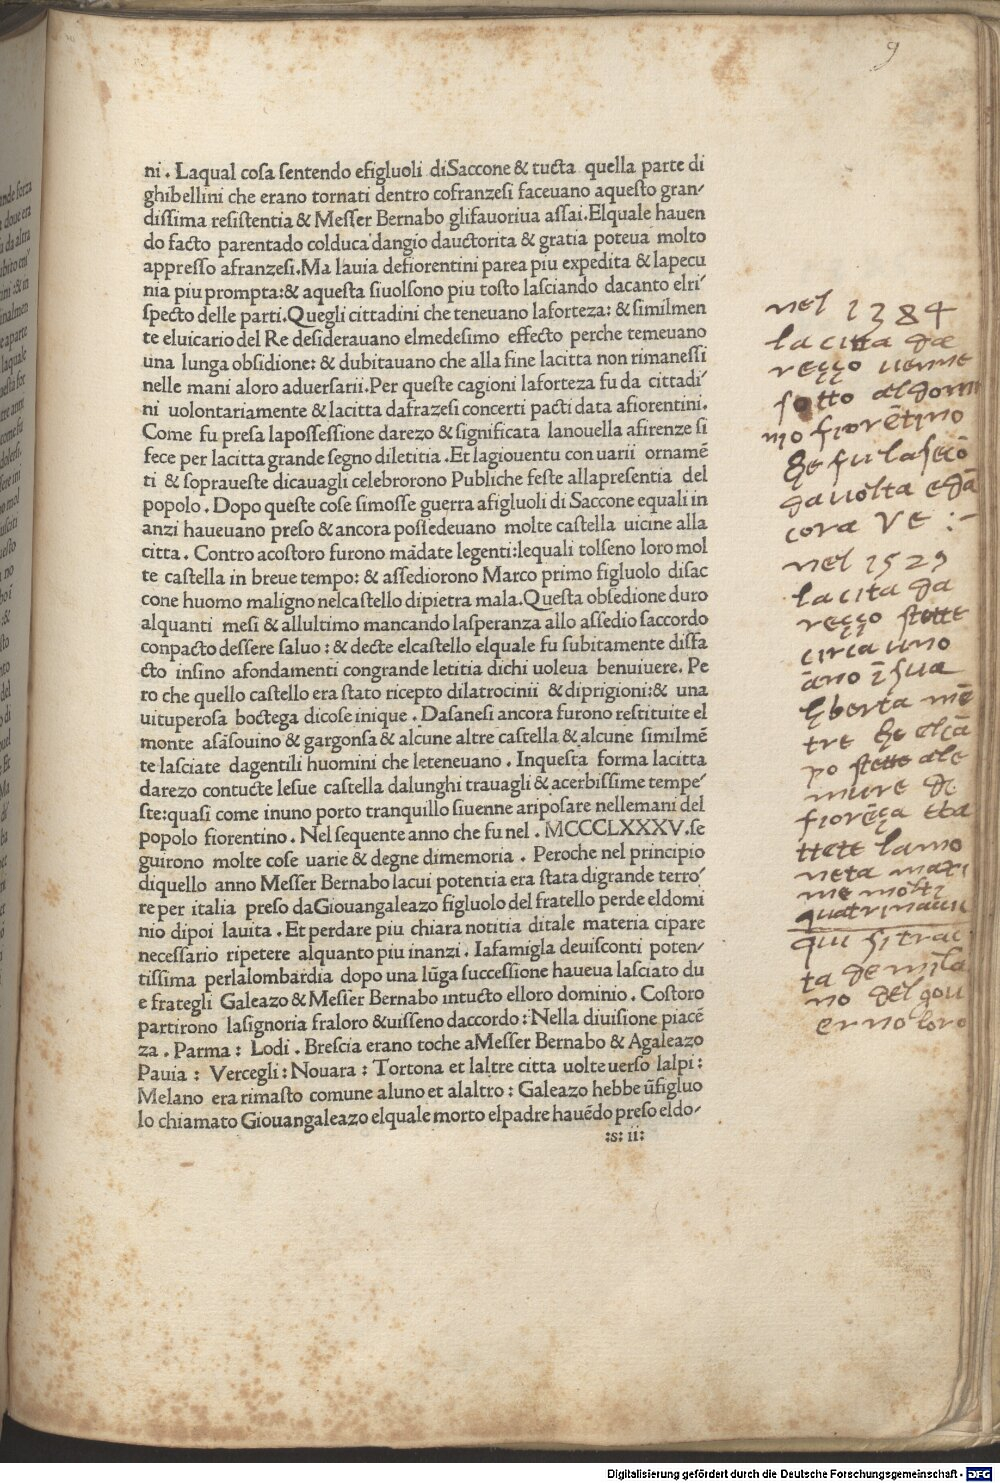 9
ni . Laqual cosa sentendo efigluoli diSaccone & tucta quella parte di
ghibellini che erano tornati dentro cofranzesi faceuano aquesto gran-
dissima resistentia & Messer Bernabo glifauoriua assai.Elquale hauen
do facto parentado colduca dangio dauctorita & gratia poteua molto
appresso afranzesi.Ma lauia defiorentini parea piu expedita & lapecu
nia piu prompta:& aquesta siuolsono piu tosto lasciando dacanto elri-
specto delle parti.Quegli cittadini che teneuano laforteza: & similmen
te eluicario del Re desiderauano elmedesimo effecto perche temeuano
una lunga obsidione: & dubitauano che alla fine lacitta non rimanessi
nelle mani aloro aduersarii.Per queste cagioni laforteza fu da cittadi-
ni uolontariamente & lacitta dafrazesi concerti pacti data afiorentini.
Come fu presa lapossessione darezo & significata lanouella afirenze si
fece per lacitta grande segno diletitia . Et lagiouentu con uarii ornamē
ti & sopraueste dicauagli celebrorono Publiche feste allapresentia del
popolo . Dopo queste cose simosse guerra afigluoli di Saccone equali in
anzi haueuano preso & ancora possedeuano molte castella uicine alla
citta . Contro acostoro furono mādate legenti:lequali tolseno loro mol
te castella in breue tempo: & assediorono Marco primo figluolo disac
cone huomo maligno nelcastello dipietra mala.Questa obsedione duro
alquanti mesi & allultimo mancando lasperanza allo assedio saccordo
conpacto dessere saluo : & decte elcastello elquale fu subitamente disfa
cto insino afondamenti congrande letitia dichi uoleua benuiuere. Pe
ro che quello castello era stato ricepto dilatrocinii & diprigioni:& una
uituperosa boctega dicose inique . Dasanesi ancora furono restituite el
monte asāsouino & gargonsa & alcune altre castella & alcune similmē
te lasciate dagentili huomini che leteneuano . Inquesta forma lacitta
darezo contucte lesue castella dalunghi trauagli & acerbissime tempe-
ste:quasi come inuno porto tranquillo siuenne ariposare nellemani del
popolo fiorentino . Nel sequente anno che fu nel . MCCCLXXXV.se
guirono molte cose uarie & degne dimemoria . Peroche nel principio
diquello anno Messer Bernabo lacui potentia era stata digrande terro-
re per italia preso daGiouangaleazo figluolo del fratello perde eldomi
nio dipoi lauita . Et perdare piu chiara notitia ditale materia cipare
necessario ripetere alquanto piu inanzi . Iafamigla deuisconti poten-
tissima perlalombardia dopo una lūga successione haueua lasciato du
e frategli Galeazo & Messer Bernabo intucto elloro dominio . Costoro
partirono lasignoria fraloro & uisseno daccordo : Nella diuisione piacē
za . Parma : Lodi . Brescia erano toche aMesser Bernabo & Agaleazo
Pauia : Vercegli : Nouara : Tortona et laltre citta uolte uerso lalpi :
Melano era rimasto comune aluno et alaltro : Galeazo hebbe ūfigluo
lo chiamato Giouangaleazo elquale morto elpadre hauēdo preso eldo-
:s: ii:
nel 1384
la citta da
rezzo uenne
sotto al
fiorētino
che fu la secō
da uolta
cora VE :-
nel 1529
la cita da
rezzo stette
circa uno
āno ī sua
liberta mē
tre
po stette ale
mure de
fiorēza
neta
me molti
quatrinacci
qui si trac
ta de mila
no del gou
erno loro
Digitalisierung gefördert durch die Deutsche Forschungsgemeinschaft - DFG